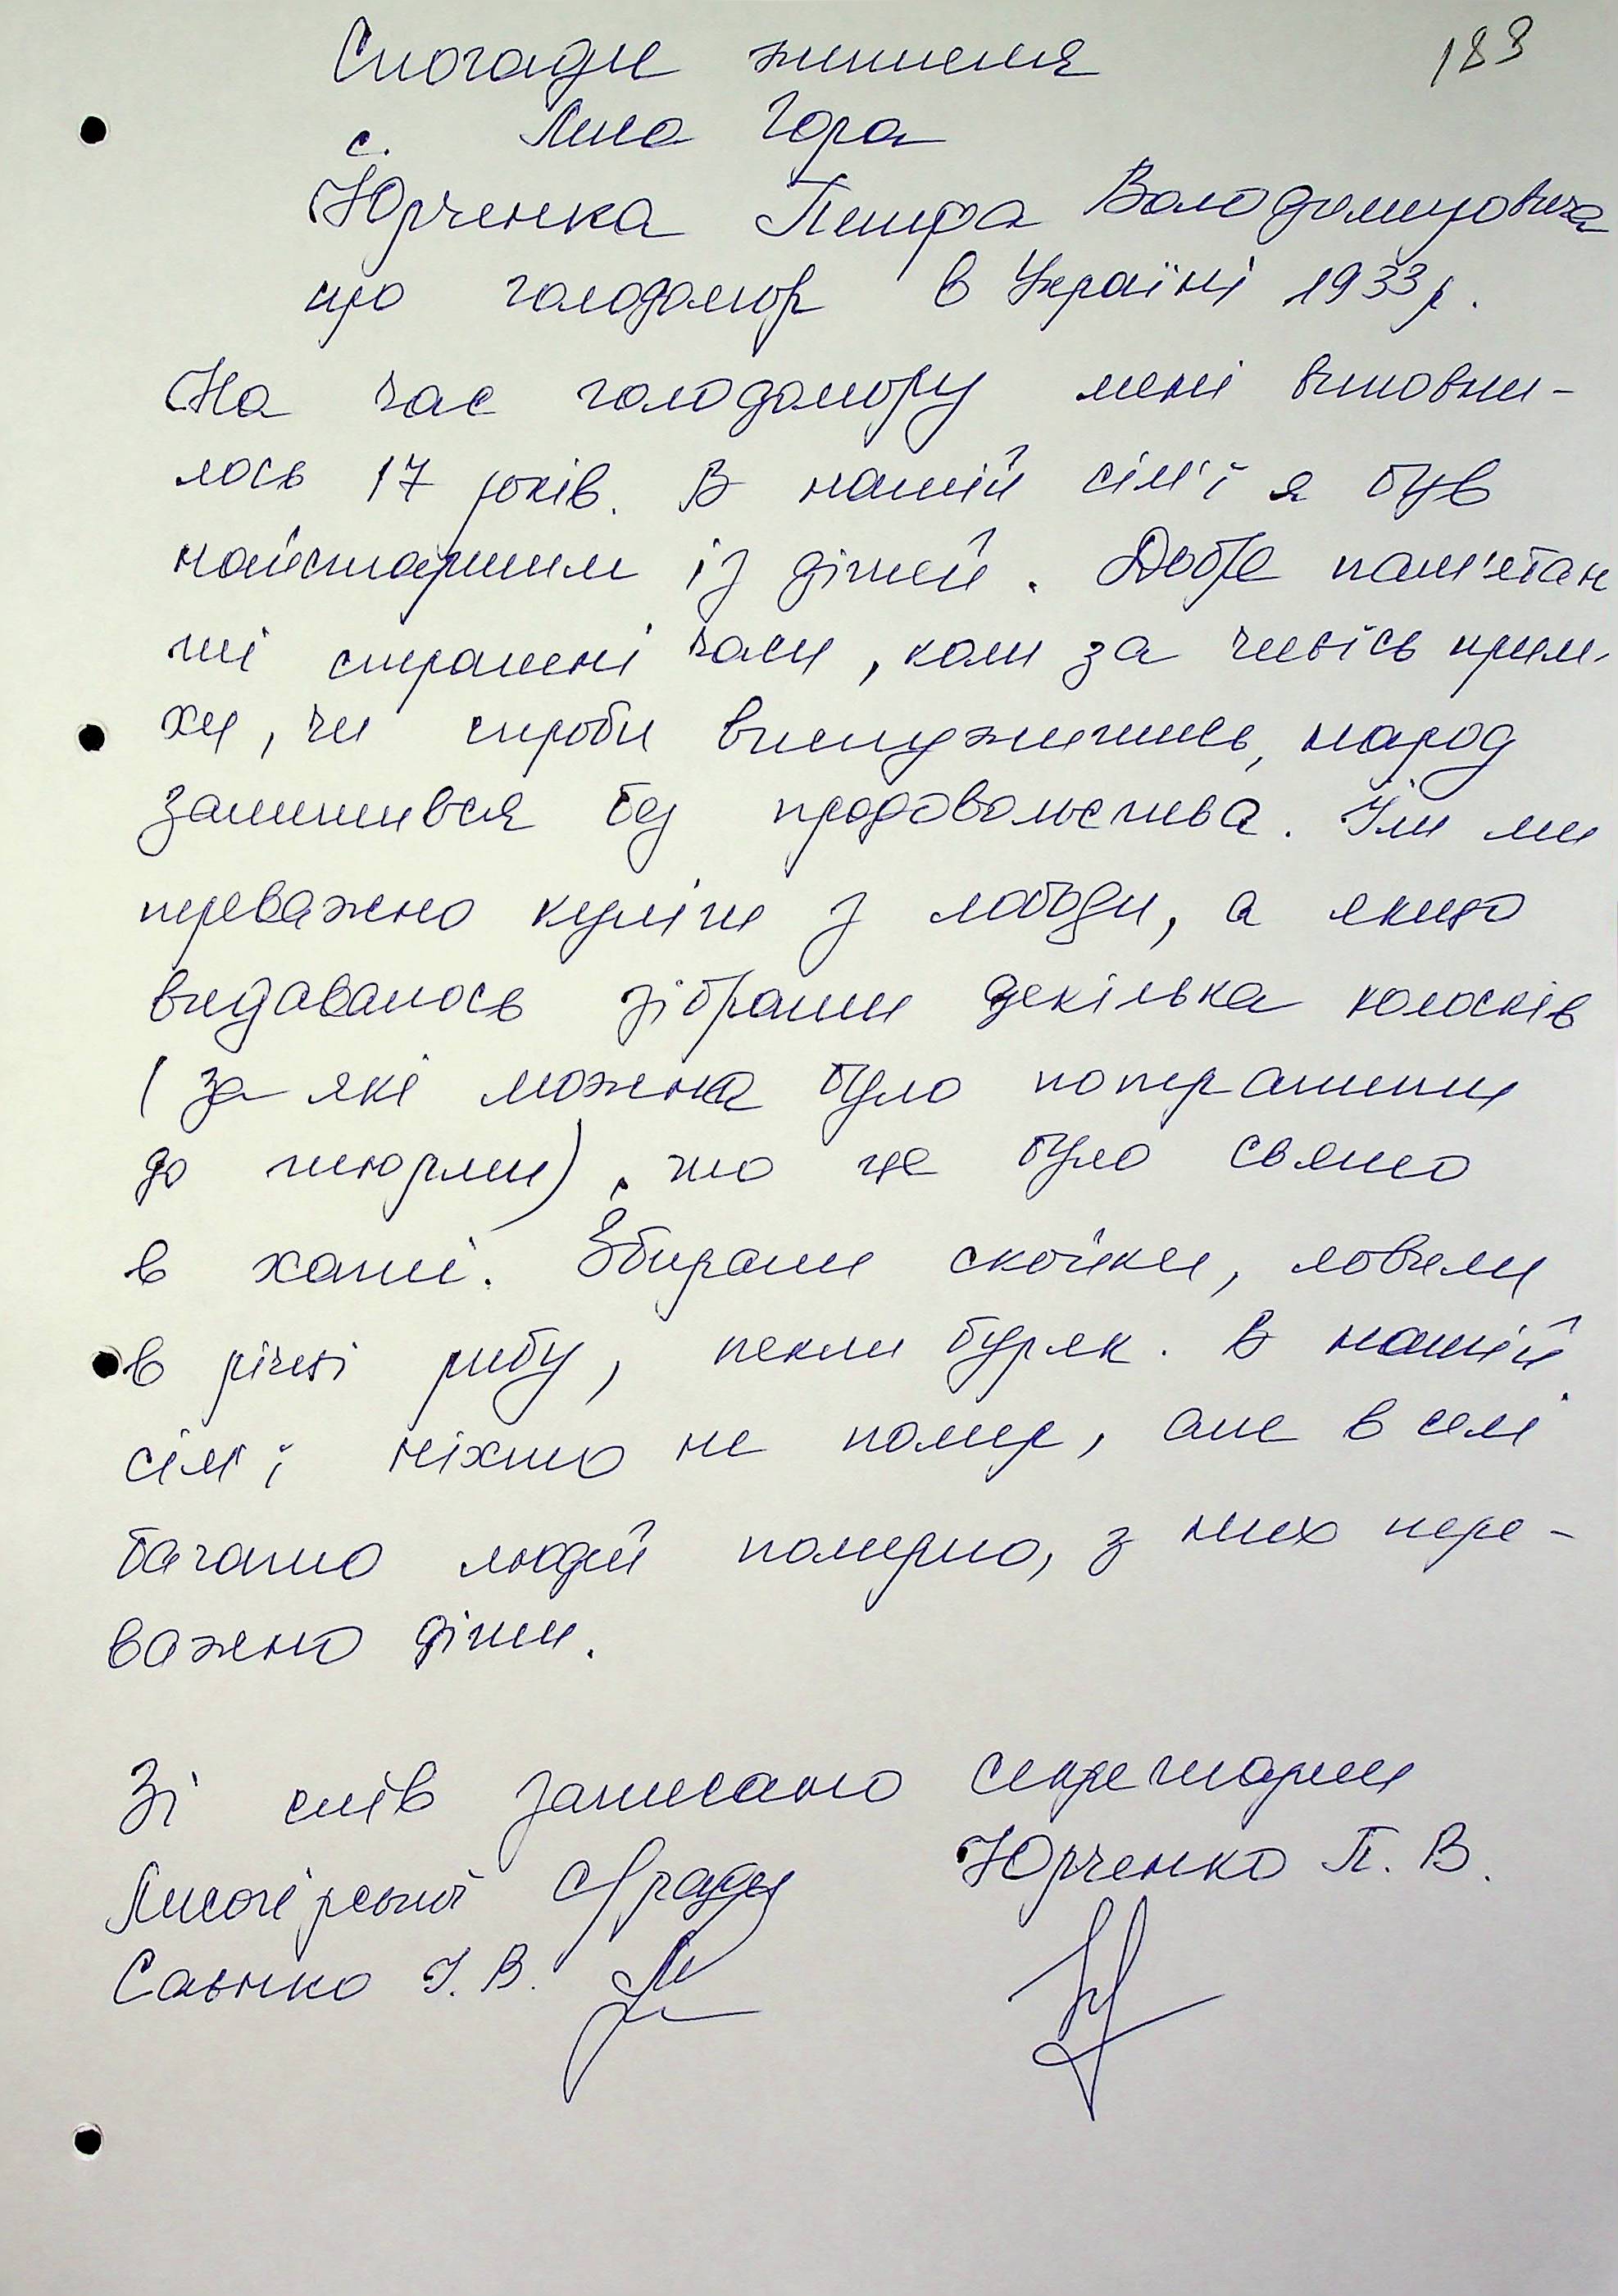 183
Спогади жителя
с. Лиса Гора
Юрченка Петра Володимировича
про голодомор в Україні 1933 р.
На час голодомору мені виповни-
лось 17 років. В нашій сім'ї я був
найстаршим із дітей. Добре пам'ятаю
ті страшні часи, коли за чиїсь прим-
хи, чи спроби вислужитись, народ
залишився без продовольства. Їли ми
переважно куліш з лободи, а якщо
видавалось зібрати декілька колосків
(за які можна було потрапити
до тюрми), то це було свято
в хаті. Збирали скойки, ловили
в річці рибу, пекли буряк. В нашій
сім'ї ніхто не помер, але в селі
багато людей померло, з них пере-
важно діти.
Зі слів записано секретарем
Лисогірської с/ради Юрченко П. В.
Санько І. В.